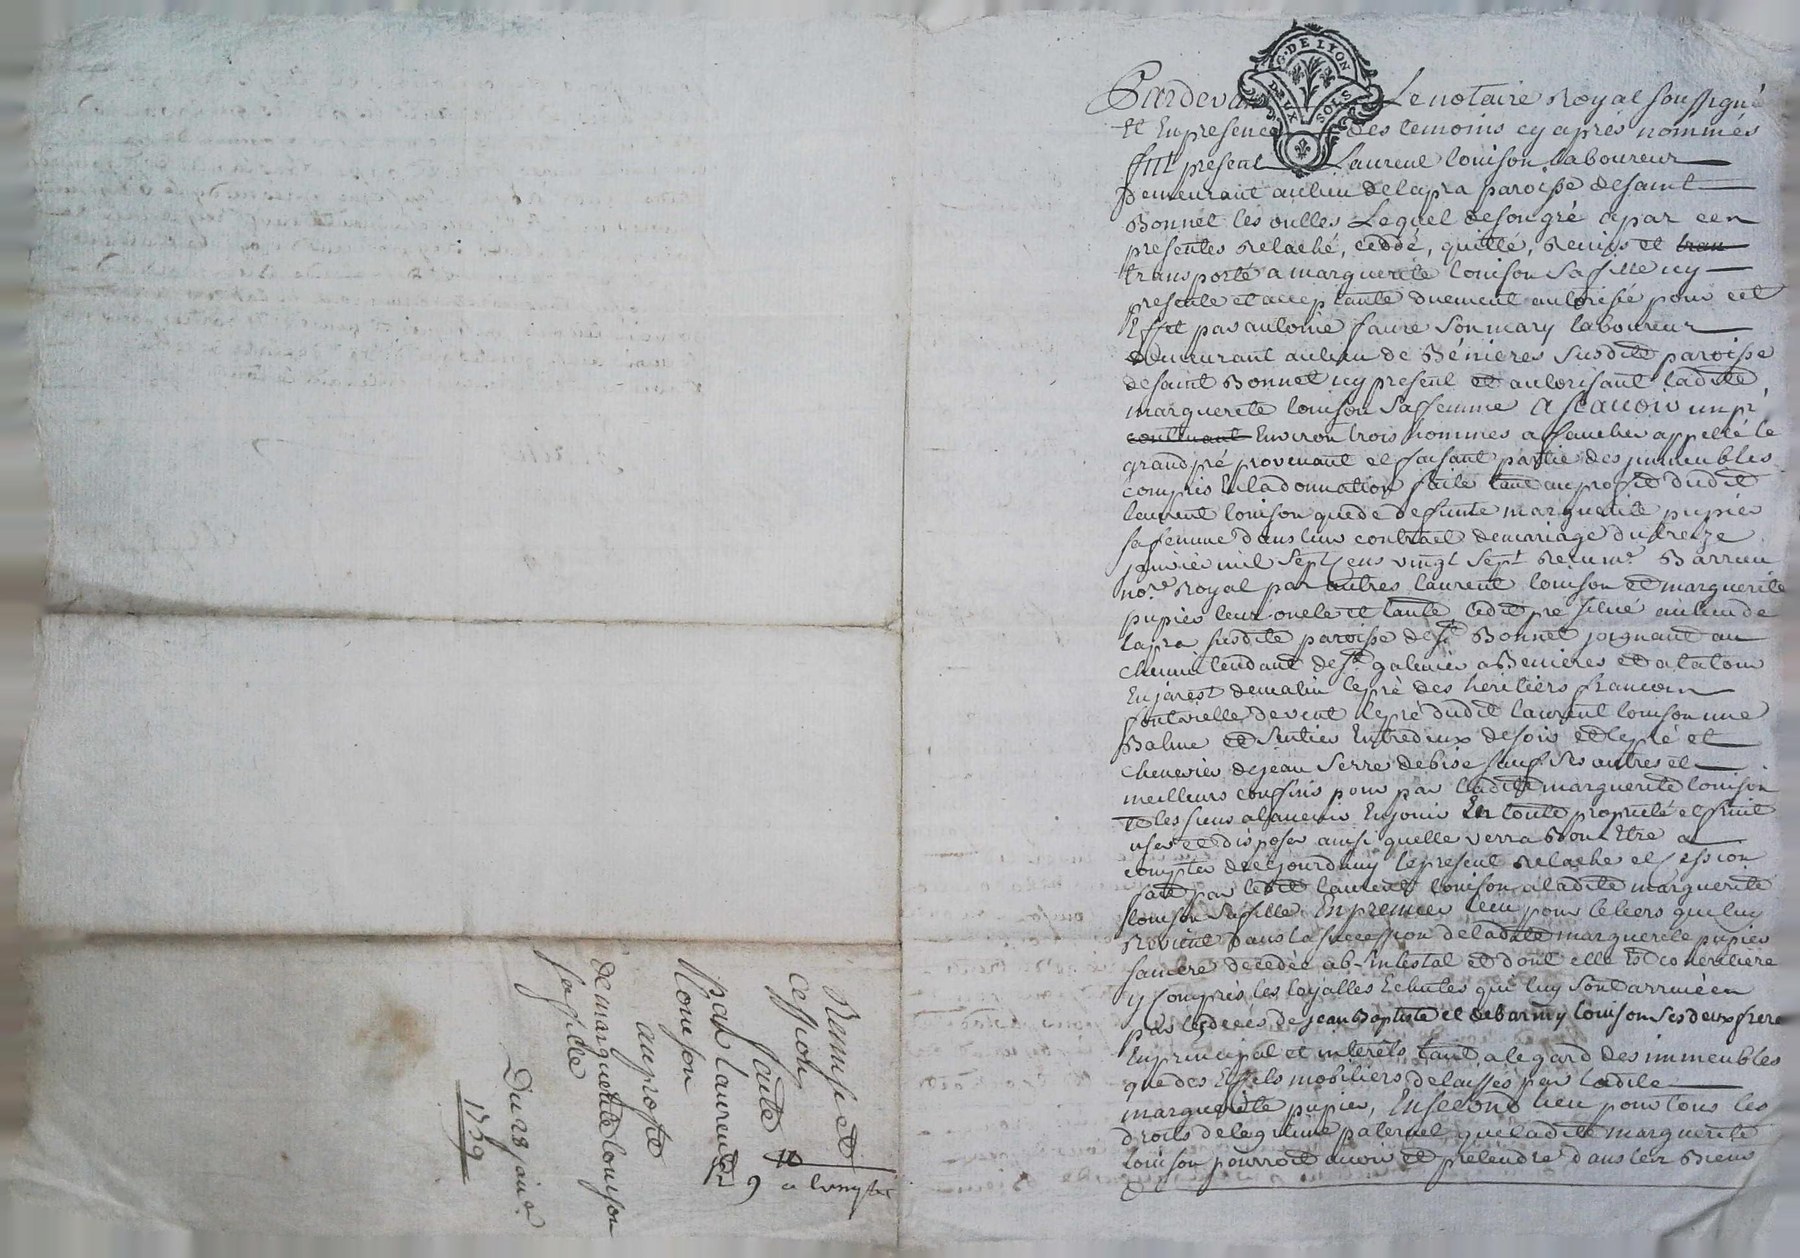 G. DE LYON
DEUX SOLS
Pardevan Le notaire Royal soussigné
et En presence des temoins cy aprés nommés
fut present Laurent louison laboureur
Demeurant au lieu de lapra paroisse de saint
Bonnet les oulles Lequel de son gré a par ces
presentes relaché, ceddé, quitté, remis et tran
transporté a marguerite louison sa fille icy
presente et acceptante duement autorisée pour cet
Effet par antoine faure son mary laboureur
demeurant au lieu de Bénieres susdite paroisse
de saint Bonnet icy present et autorisant ladite
marguerite louison sa femme a scavoir un pré
contenant Environ trois hommes a faucher appellé le
grand pré provenant et faisant partie des immeubles
compris En la donnation faite tant au profit dudit
laurent louison que de deffunte marguerite pupier
sa femme dans leur contract de mariage du treze
janvier mil sept cens vingt sept recu me
nore Royal par autres laurent louison et marguerite
pupier leur oncle et tante ledit pré situé au lieu de
lapra susdite paroisse de st Bonnet joignant au
chemin tendant de st galmier a Benieres et a latour
En jarest de matin le pré des heritiers francois
de vent le pré dudit laurent louison une
Balme et sentier Entredeux de soir et le pré et
chenevier de jean Serre de bise sauf ses autres et
meilleurs confins pour par ladite marguerite louison
et les siens a l'avenir En jouir En toute proprieté et fruit
user et disposer ainsi quelle verra Bon Etre a
compter de ce jourdhuy le present relache et cession
fait par ledit laurent louison a ladite marguerite
louison sa fille En premier lieu pour le tiers qui luy
Revient dans la succession de ladite marguerite pupier
sa mere decedée ab-intestat et dont elle Est coheritiere
y compris les loyalles Echutes qui luy sont arrivéen
par le decés de jean Baptiste et de barmy louison ses deux frere
En principal et interêts tant a legard des immeubles
que des Effets mobiliers delaissés par ladite
marguerite pupier, En second lieu pour tous les
droits de legitime paternel que ladite marguerite
louison pourroit avoir et pretendre dans les Biens
Remise et
cession
faite
par laurent
Louison
au profit
de marguerite louison
sa fille
Du 25 janv.
1759